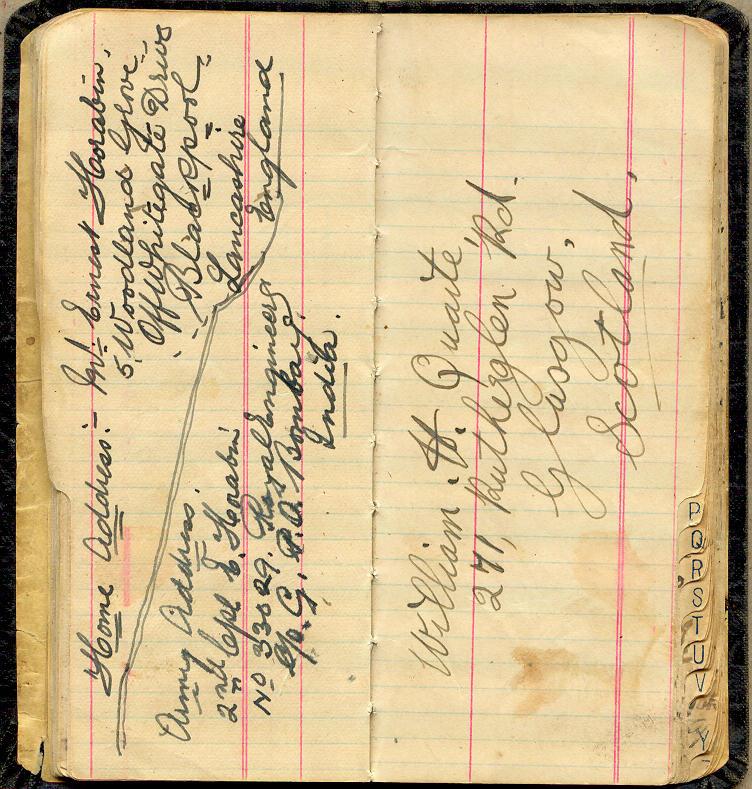 Home Address:- Mr. Ernest Horabin,
5, Woodland Grove
Off Whitegate Drive
Blackpool
Lancashire
England
Army Address.
2nd Cpl E. Horabin
No 33629. Royal Engineers
c/o G. P. O. Bombay
India.
William H. Quaite
271, Rutherglen Rd.
Glasgow,
Scotland,
P
Q
R
S
T
U
V
Y